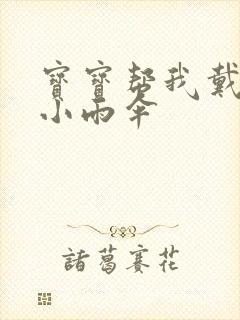 寶寶幫我戴
小雨傘
諸葛賽花